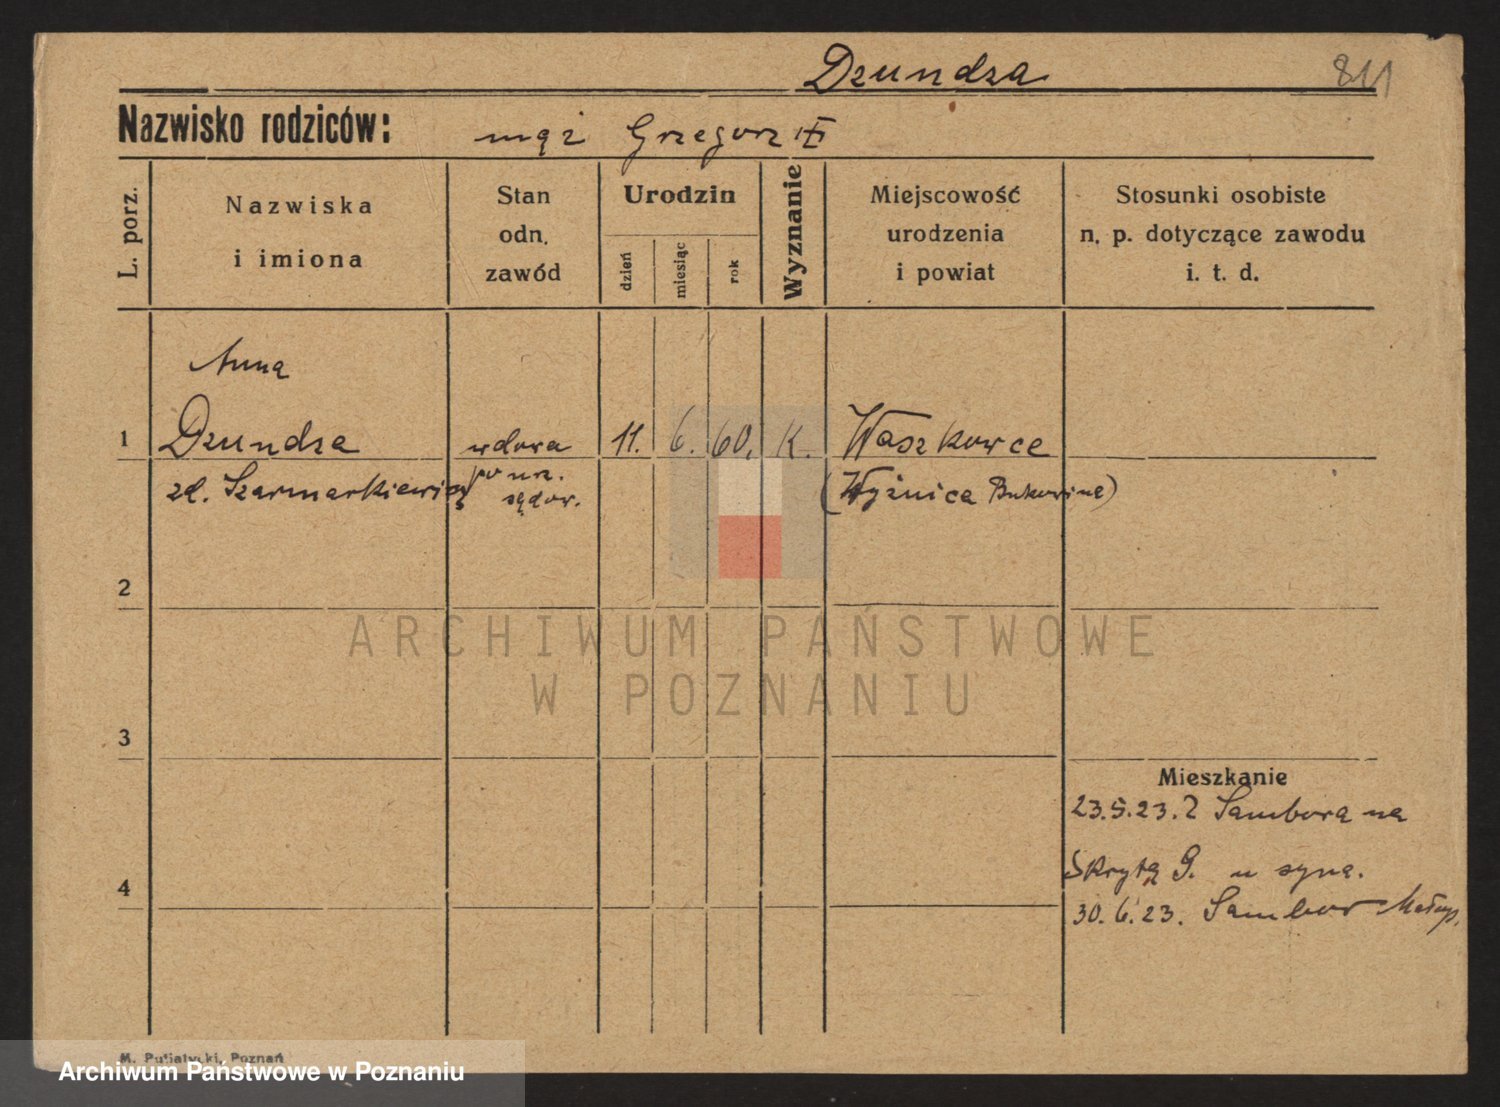 Dzundza 811
Nazwisko rodziców: mąż Grzegorz
L. porz.
Nazwiska
i imiona
Stan
odn.
zawód
Urodzin
dzień
miesiąc
rok
Wyznanie
Miejscowość
urodzenia
i powiat
Stosunki osobiste
n. p. dotyczące zawodu
i. t. d.
Anna
1 Dzundza wdowa 11. 6. 60. K. Waszkowce
zd. Szarmarkiewicz po urz. (Wyżnica Bukowina)
sądow.
2
ARCHIWUM PAŃSTWOWE
W POZNANIU
3
Mieszkanie
23.5.23. Z Sambora na
Skrytą 9. u syna.
4
30.6.23. Sambor Małop.
M. Putiatycki, Poznań
Archiwum Państwowe w Poznaniu